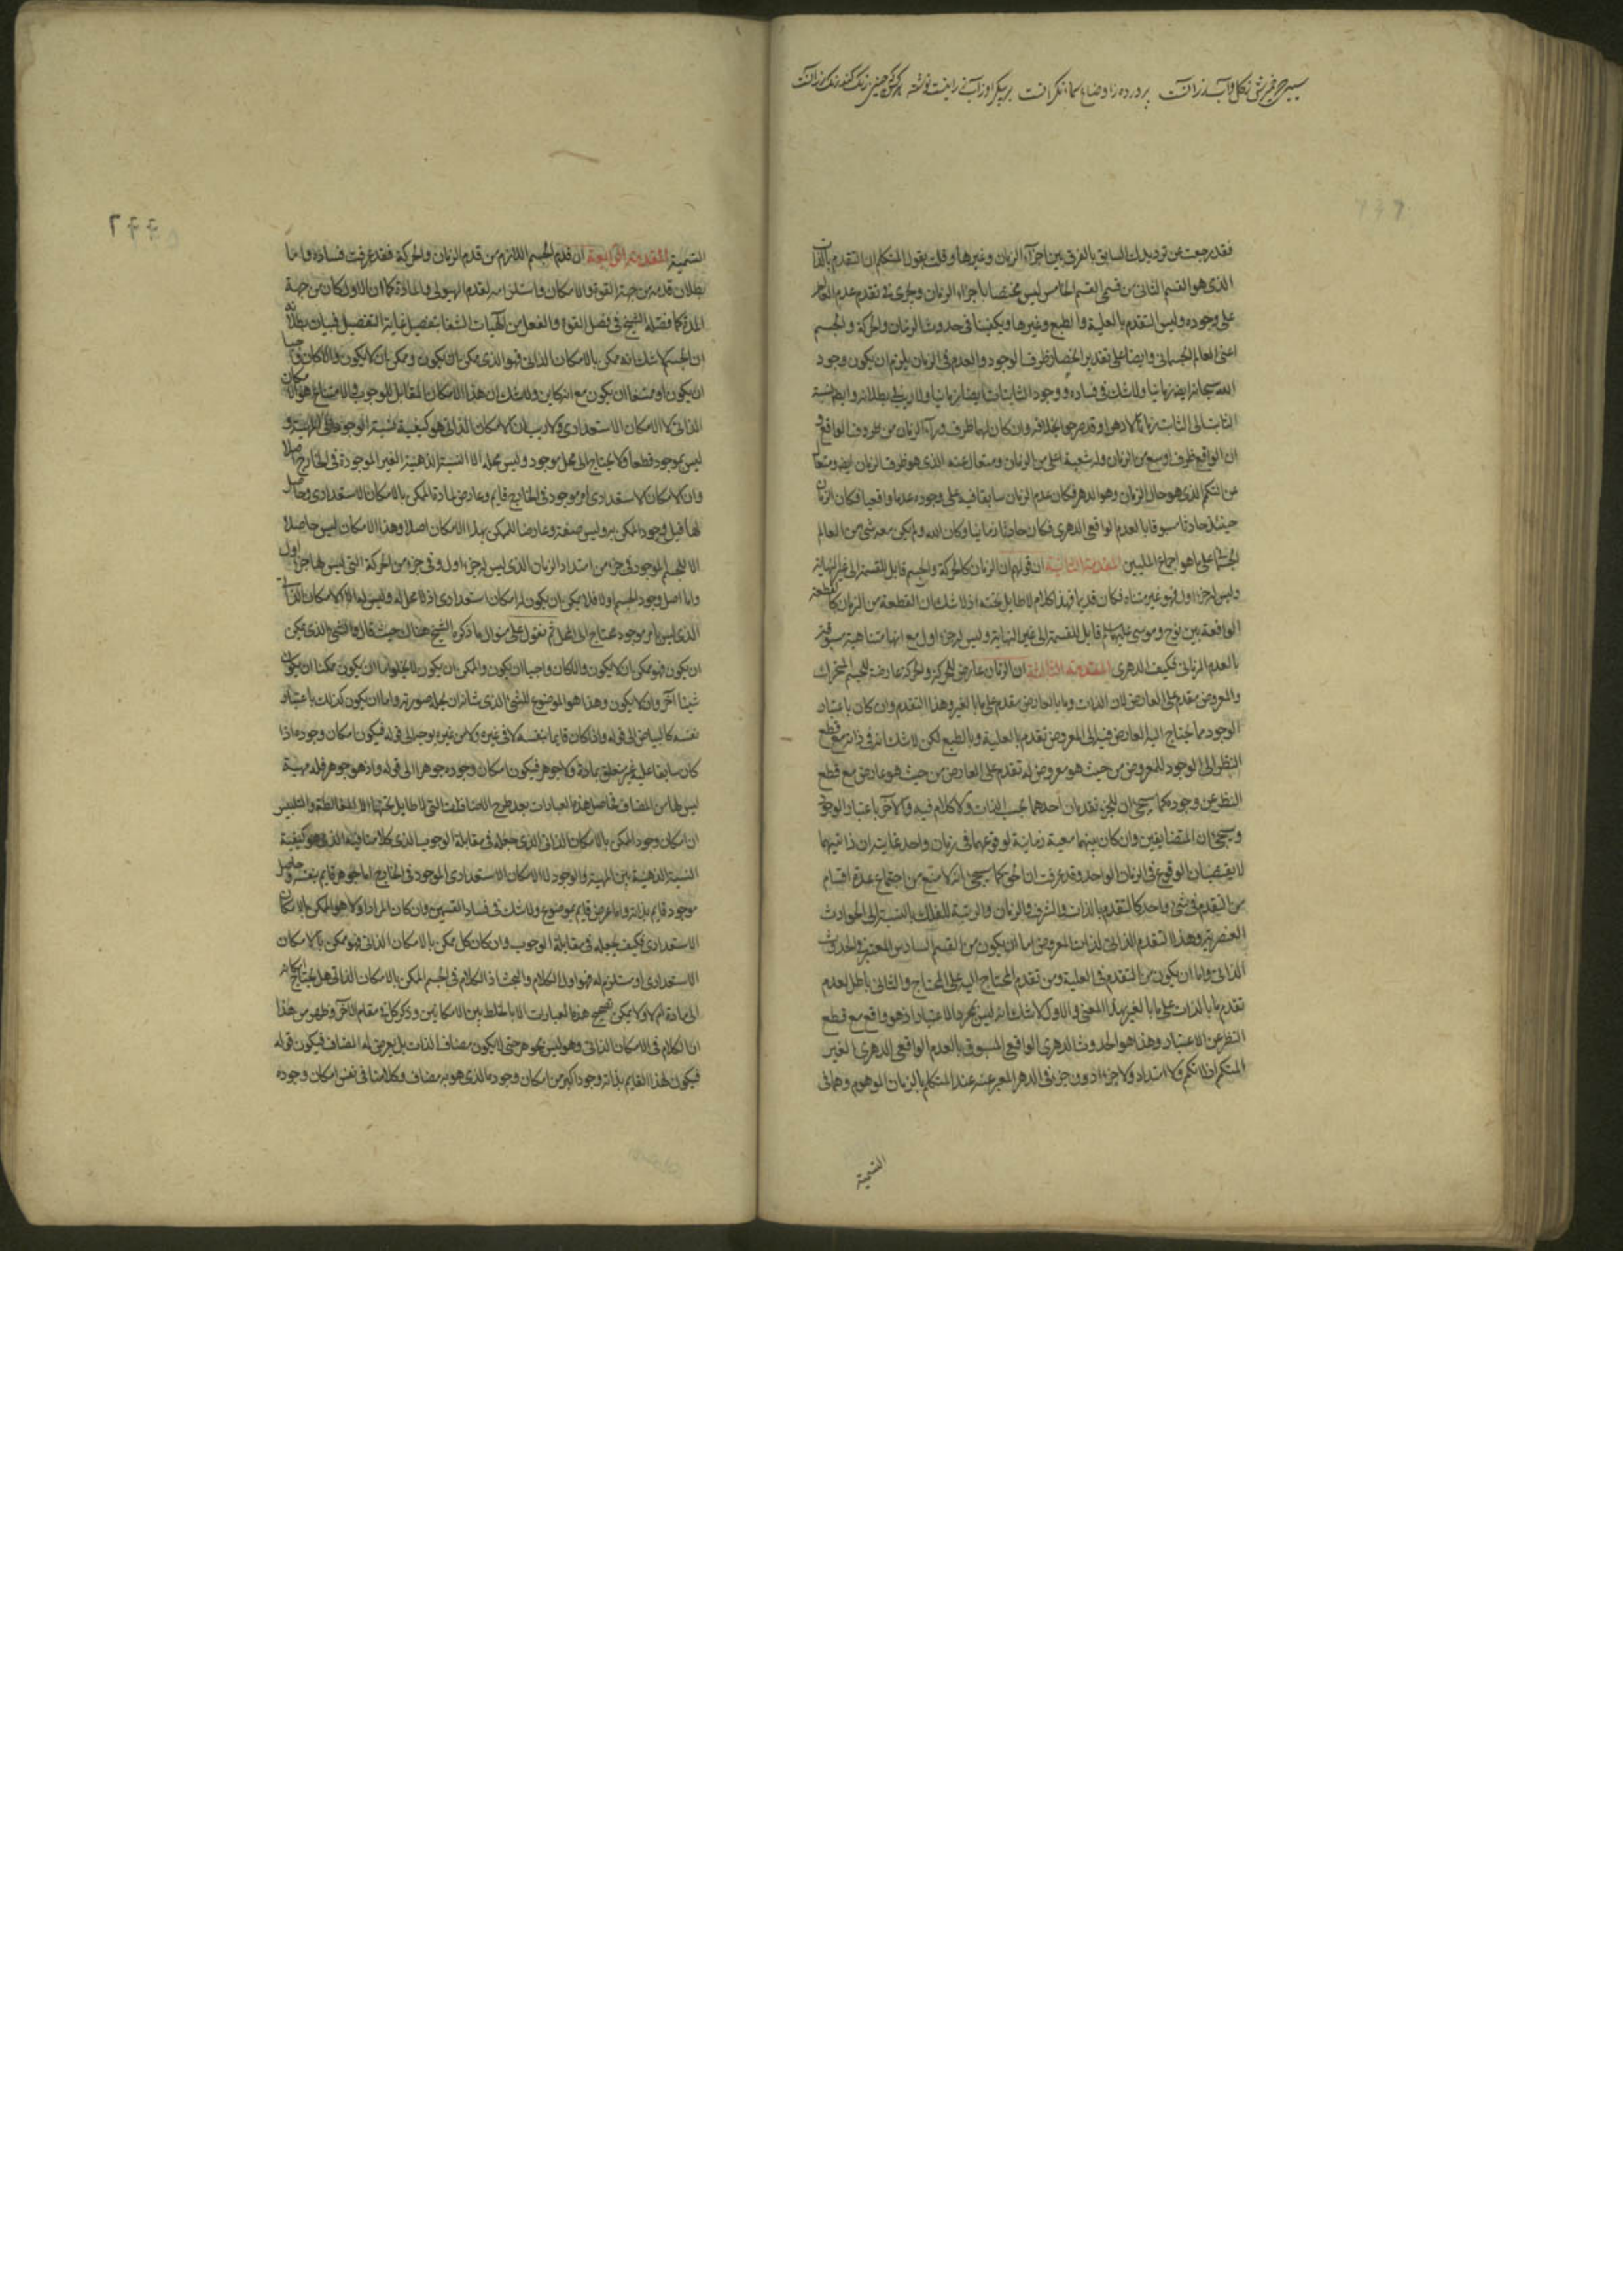 فقد رجعت عن ترديدك السابق بالفرق بين اجزآء الزمان وغيرها وقلت يقول المتكلم ان التقدم بالذات
الذى هو القسم الثانى من قسمى القسم الخامس ليس مختصا باجزاء الزمان ويجرى فى تقدم عدم العالم
على وجوده وليس التقدم بالعلية والطبع وغيرها ويكفينا فى حدوث الزمان والحركة والجسم
اعنى العالم الجسمانى وايضا على تقدير انحصار ظرف الوجود والعدم فى الزمان يلزم ان يكون وجود
الله سبحانه ايضا زمانيا ولا شك فى فساده ووجود الثابتات ايضا زمانيا ولا ريب فى بطلانه وايضا نسبة
الثابت الى الثابت
ان الواقع ظرف اوسع من الزمان وله شعبة اعلى من الزمان ومتعال عنه الذى هو ظرف الزمان ايضا ومتعال
عن التكم الذى هو حال الزمان وهو الدهر فكان عدم الزمان سابقا فيه على وجوده عدما واقعيا فكان الزمان
حينئذ حادثا مسبوقا بالعدم الواقعى الدهرى فكان حادثا زمانيا وكان الله ولم يكن معه شئ من العالم
الجسمانى على ما هو اجماع المليين المقدمة الثانية ان قولهم ان الزمان كالحركة والجسم قابل للقسمة الى غير النهاية
وليس له جزء اول فهو غير متناه فكان قديما فهذا كلام لا طايل تحته اذ لا شك ان القطعة من الزمان كالقطعة
الواقعة بين نوح وموسى عليهما السلام قابل للقسمة الى غير النهاية وليس له جزء اول مع انها متناهية مسبوقة
بالعدم الزمانى فكيف الدهرى المقدمة الثالثة ان الزمان عارض للحركة والحركة عارضة للجسم المتحرك
والمعروض مقدم على العارض لان الذات وما بالعارض مقدم على ما بالغير وهذا التقدم وان كان باعتبار
الوجود مما يحتاج اليه العارض فيه الى المعروض تقدم بالعلية وبالطبع لكن لا شك انه فى ذاته مع قطع
النظر الى الوجود للمعروض من حيث هو معروض له تقدم على العارض من حيث هو عارض مع قطع
النظر عن وجوده كما سيجئ ان للجزء تقدمان احدهما بحسب الذات ولا كلام فيه والآخر باعتبار الوجود
وسيجئ ان المتضايفين وان كان بينهما معية زمانية لوقوعهما فى زمان واحد
لا يقتضيان الوقوع فى الزمان الواحد وقد عرفت ان الحق كما سيجئ انه لا منع من اجتماع عدة اقسام
من التقدم فى شئ واحد كالتقدم بالذات والشرف والزمان والرتبة للفلك بالنسبة الى الحوادث
العنصرية وهذا التقدم الذاتى لذات المعروض اما ان يكون من القسم السادس المعتبر فى الحدوث
الذاتى واما ان يكون من التقدم فى العلية ومن تقدم المحتاج اليه على المحتاج والثانى باطل لعدم
تقدم ما بالذات على ما بالغير بهذا المعنى والاول لا شك انه ليس بمجرد الاعتبار اذ هو واقع مع قطع
النظر عن الاعتبار وهذا هو الحدوث الدهرى الواقعى المسبوق بالعدم الواقعى الدهرى الغير
المتكم اذ لا تكم ولا امتداد ولا جزء دون جزء فى الدهر المعبر عنه عند المتكلم بالزمان الموهوم
التسمية
٢٤٤
التسمية المقدمة الرابعة ان قدم الجسم اللازم من قدم الزمان والحركة فقد عرفت فساده واما
بطلان قدمه من جهة القوة والامكان واستلزامه لقدم الهيولى والمادة كما ان الاول كان من جهة
المدة كما فصله الشيخ فى فصل القوة والفعل من الهيات الشفا بتفصيل غاية التفصيل فبيان بطلانه
ان الجسم لا شك انه ممكن بالامكان الذاتى فهو الذى ممكن بان يكون وممكن بان لا يكون والا لكان واجبا
ان يكون او ممتنعا ان يكون مع انه كاين ولا شك ان هذا الامكان المقابل للوجوب والامتناع هو الامكان
الذاتى لا الامكان الاستعدادى ولا ريب ان الامكان الذاتى هو كيفية نسبة الوجود الى المهية و
ليس بموجود قطعا ولا يحتاج الى محل موجود وليس محله الا النسبة الذهنية الغير الموجودة فى الخارج اصلا
وان الامكان الاستعدادى امر موجود فى الخارج قايم وعارض لمادة الممكن بالامكان الاستعدادى وحاصل
لها قبل وجود الممكن به وليس صفة وعارضا للممكن بهذا الامكان اصلا وهذا الامكان ليس حاصلا
الا للجسم الموجود فى جزء من امتداد الزمان الذى ليس له جزء اول وفى جزء من الحركة التى ليس لها جزء اول
واما اصل وجود الجسم اولا فلا يمكن ان يكون له امكان استعدادى اذ لا محل له وليس له الا الامكان الذاتى
الذى ليس بامر موجود محتاج الى المحل ثم نقول على منوال ما ذكره الشيخ هناك حيث قال والشئ الذى يمكن
ان يكون فهو ممكن بان لا يكون والا لكان واجبا ان يكون والممكن بان يكون لا يخلو اما ان يكون ممكنا ان يكون
شيئا آخر وان لا يكون وهذا هو الموضوع للشئ الذى من شانه ان يحله صورته واما ان يكون كذلك باعتبار
نفسه كالبياض الى قوله واذا كان قايما بنفسه لا فى غيره ولا من غيره بوجه الى قوله فيكون امكان وجوده اذا
كان سابقا عليه غير متعلق بمادة ولا جوهر فيكون امكان وجوده جوهرا الى قوله واذ هو جوهر فله مهية
ليس لها من المضاف فحاصل هذه العبارات بعد طرح الاضافات التى لا طايل تحتها الا المغالطة والتلبيس
ان امكان وجود الممكن بالامكان الذاتى الذى جعله فى مقابلة الوجوب الذى كلامنا فيه الذى هو كيفية
النسبة الذهنية بين المهية والوجود لا الامكان الاستعدادى الموجود فى الخارج اما جوهر قايم بنفسه وحاصل
موجود قايم بذاته واما عرض قايم بموضوع ولا شك فى فساد القسمين وان كان المراد اولا هو الممكن بالامكان
الاستعدادى فكيف يجعله فى مقابلة الوجوب وان كان كل ممكن بالامكان الذاتى فهو ممكن بالامكان
الاستعدادى او مستلزم له فهو اول الكلام والبحث اذ الكلام فى الجسم الممكن بالامكان الذاتى هل يحتاج
الى مادة ام لا ولا يمكن تصحيح هذه العبارات الا بالخلط بين الامكانين وذكر كل فى مقام الآخر وظهر من هذا
ان الكلام فى الامكان الذاتى وهو ليس بجوهر حتى لا يكون مضاف الذات بل يعرض له المضاف فيكون قوله
فيكون لهذا القايم بذاته وجود اكبر من امكان وجوده الذى هو به مضاف وكلامنا فى نفس امكان وجوده